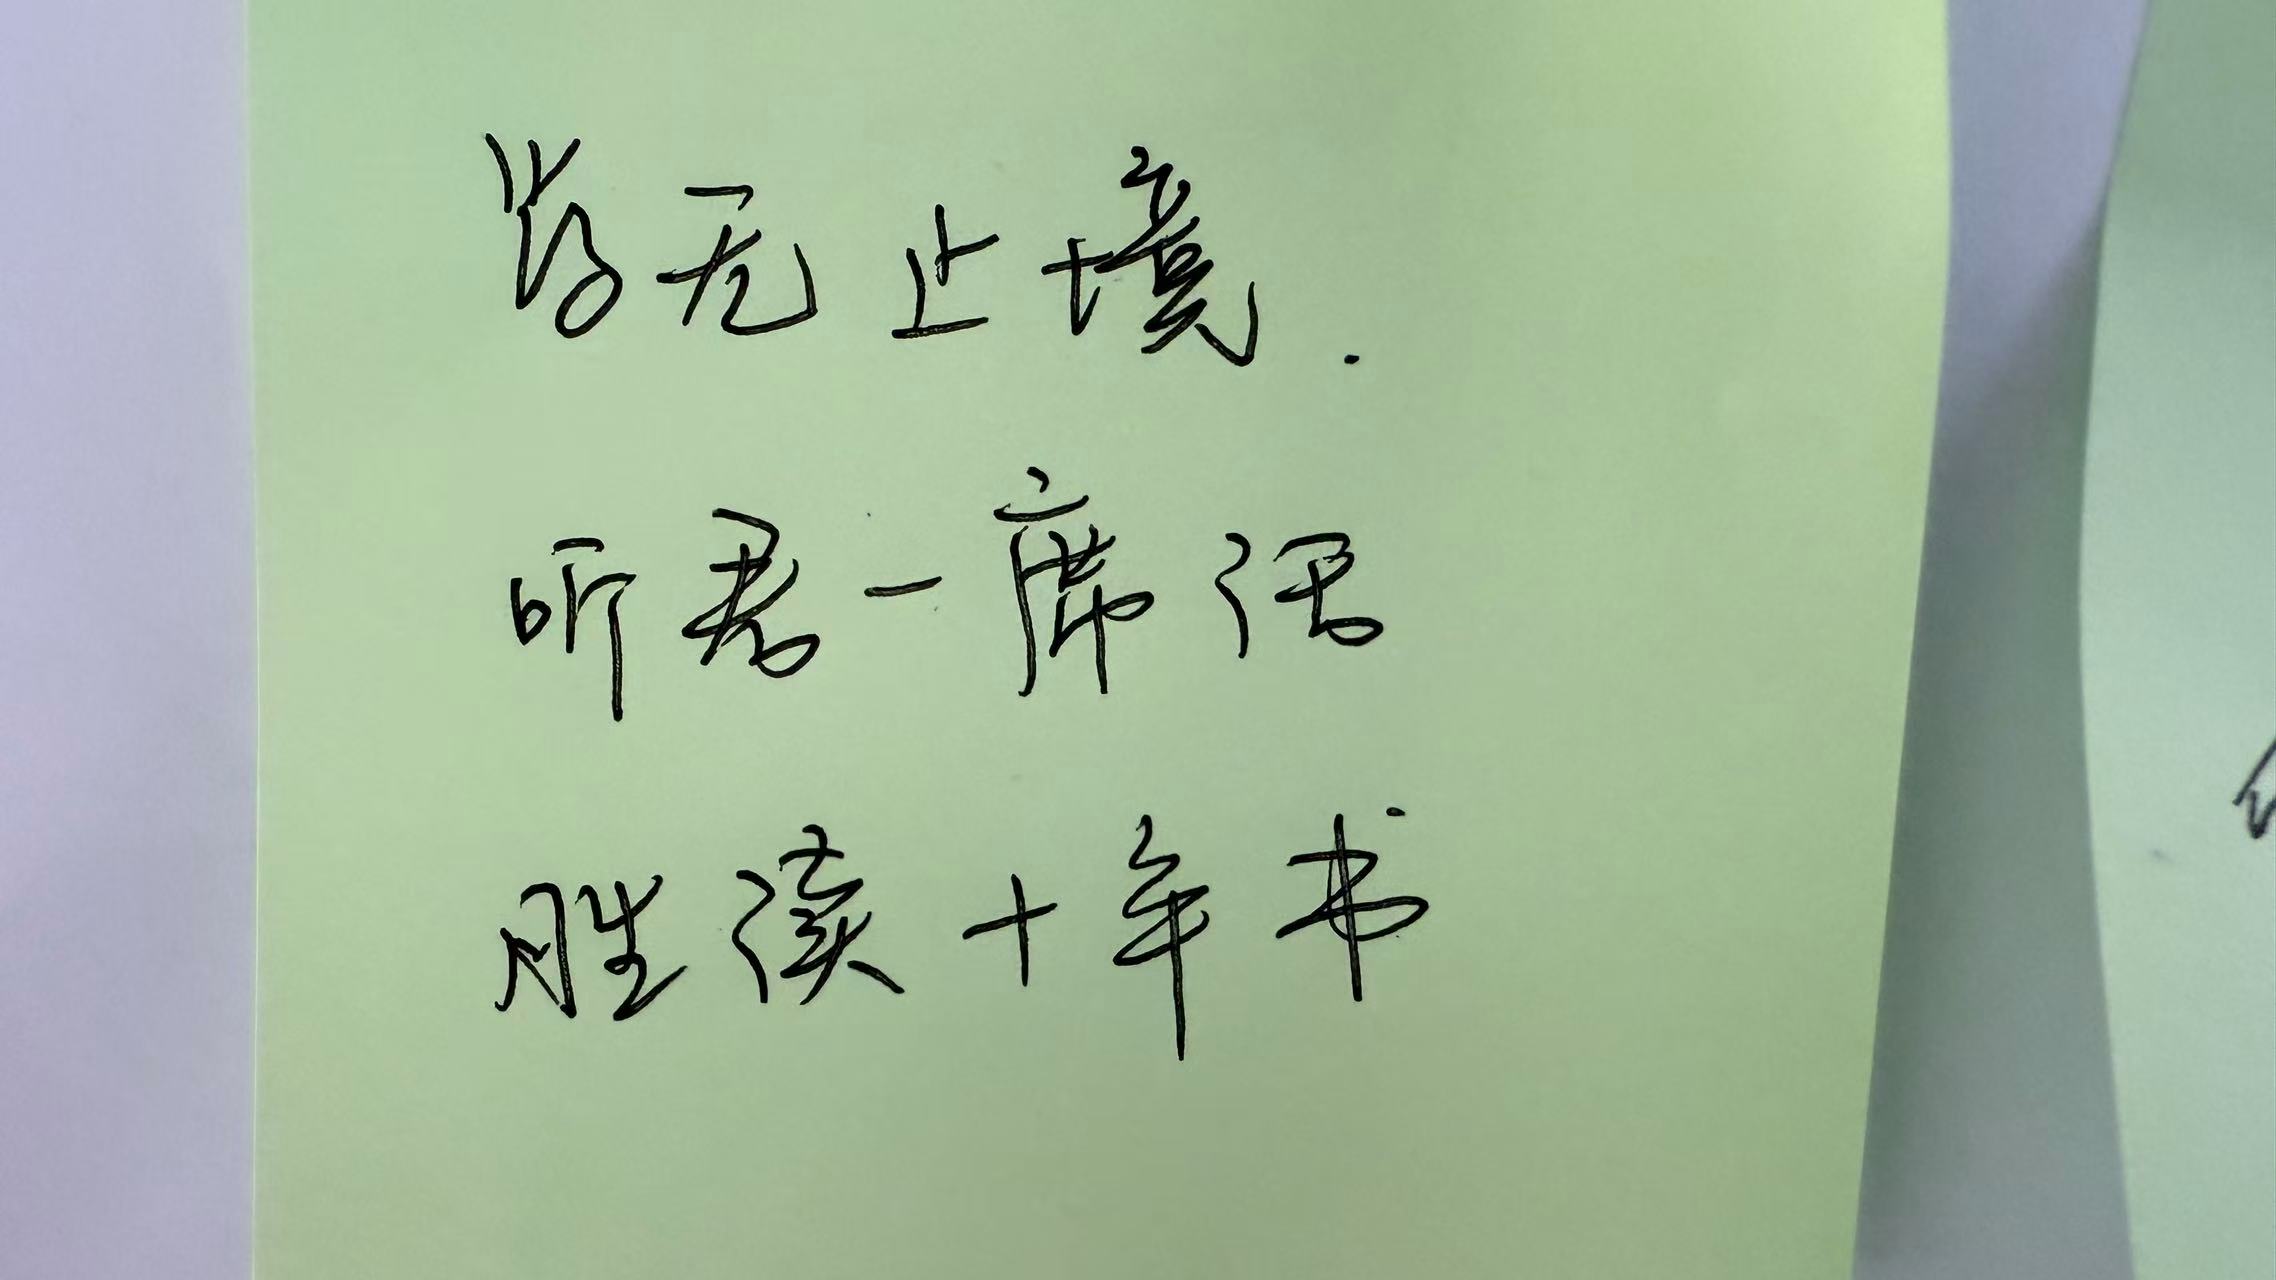 学无止境.
听君一席话
胜读十年书